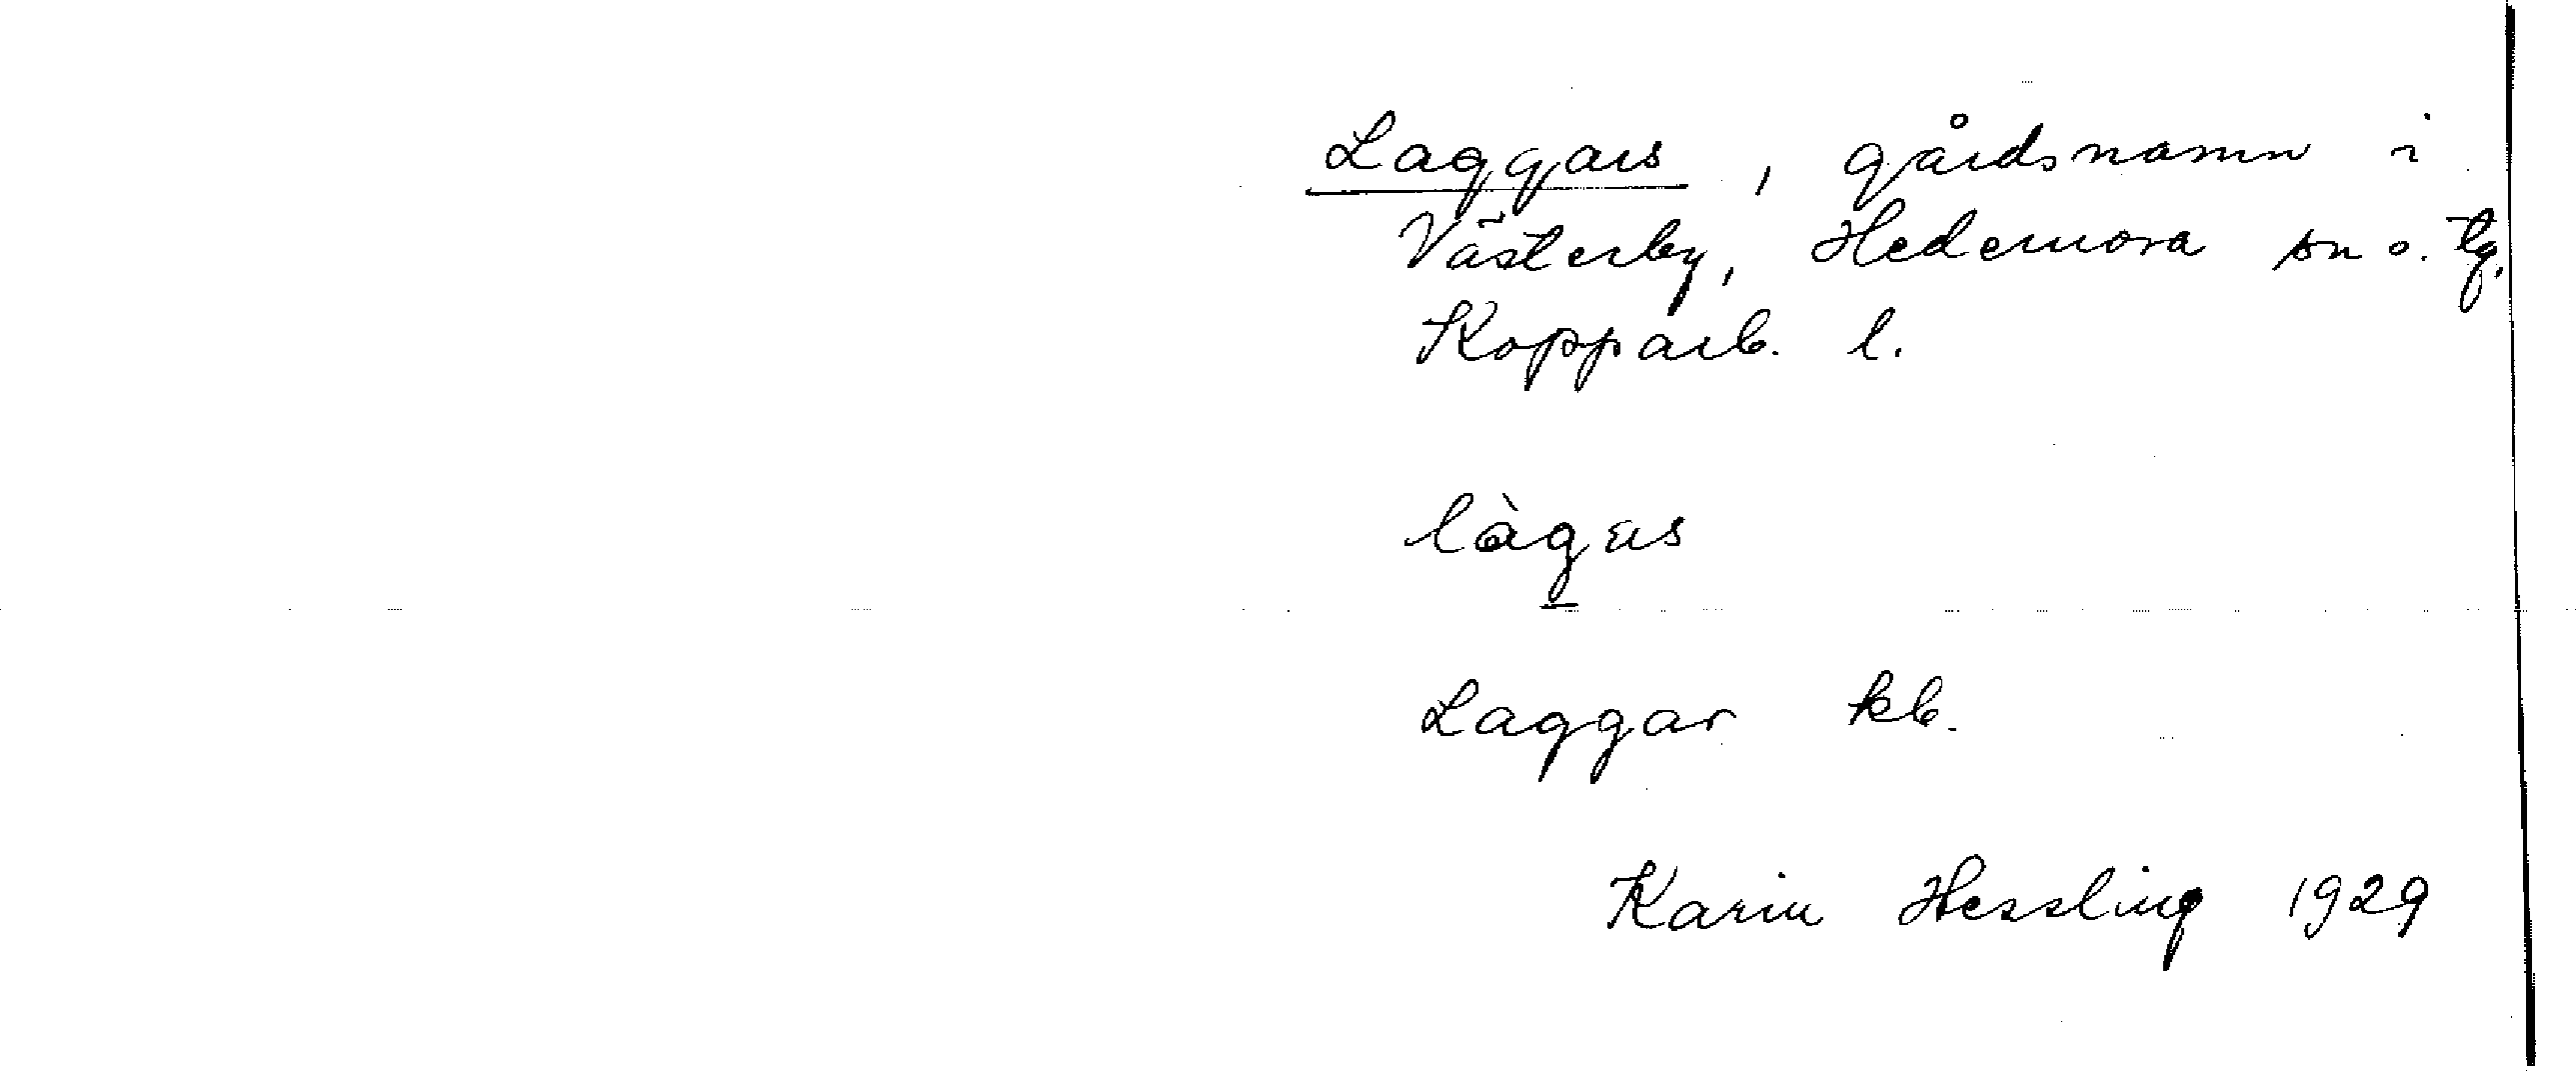 Laggars, gårdsnamn i
Västerby, Hedemora sn o. tg,
Kopparb. l.
làg̲ɛrs
Laggar kb.
Karin Hessling 1929